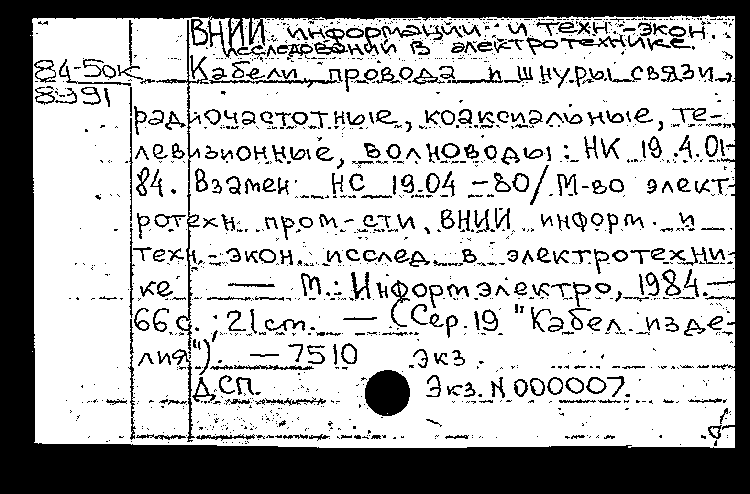 ВНИИ информации и техн.-экон.
исследований в электротехнике.
84-5ок
8391
Кабели, провода и шнуры связи,
радиочастотные, коаксиальные, те-
левизионные, волноводы: НК 19.4.01-
84. Взамен НС 19.04-80/М-во элект-
ротехн. пром-сти, ВНИИ информ. и
техн.-экон. исслед. в электротехни-
ке — М.: Информэлектро, 1984.—
66с.; 21 ст. — (Сер. 19 "Кабел. изде-
лия"). — 7510 экз.
ДСП. Экз. N 000007.